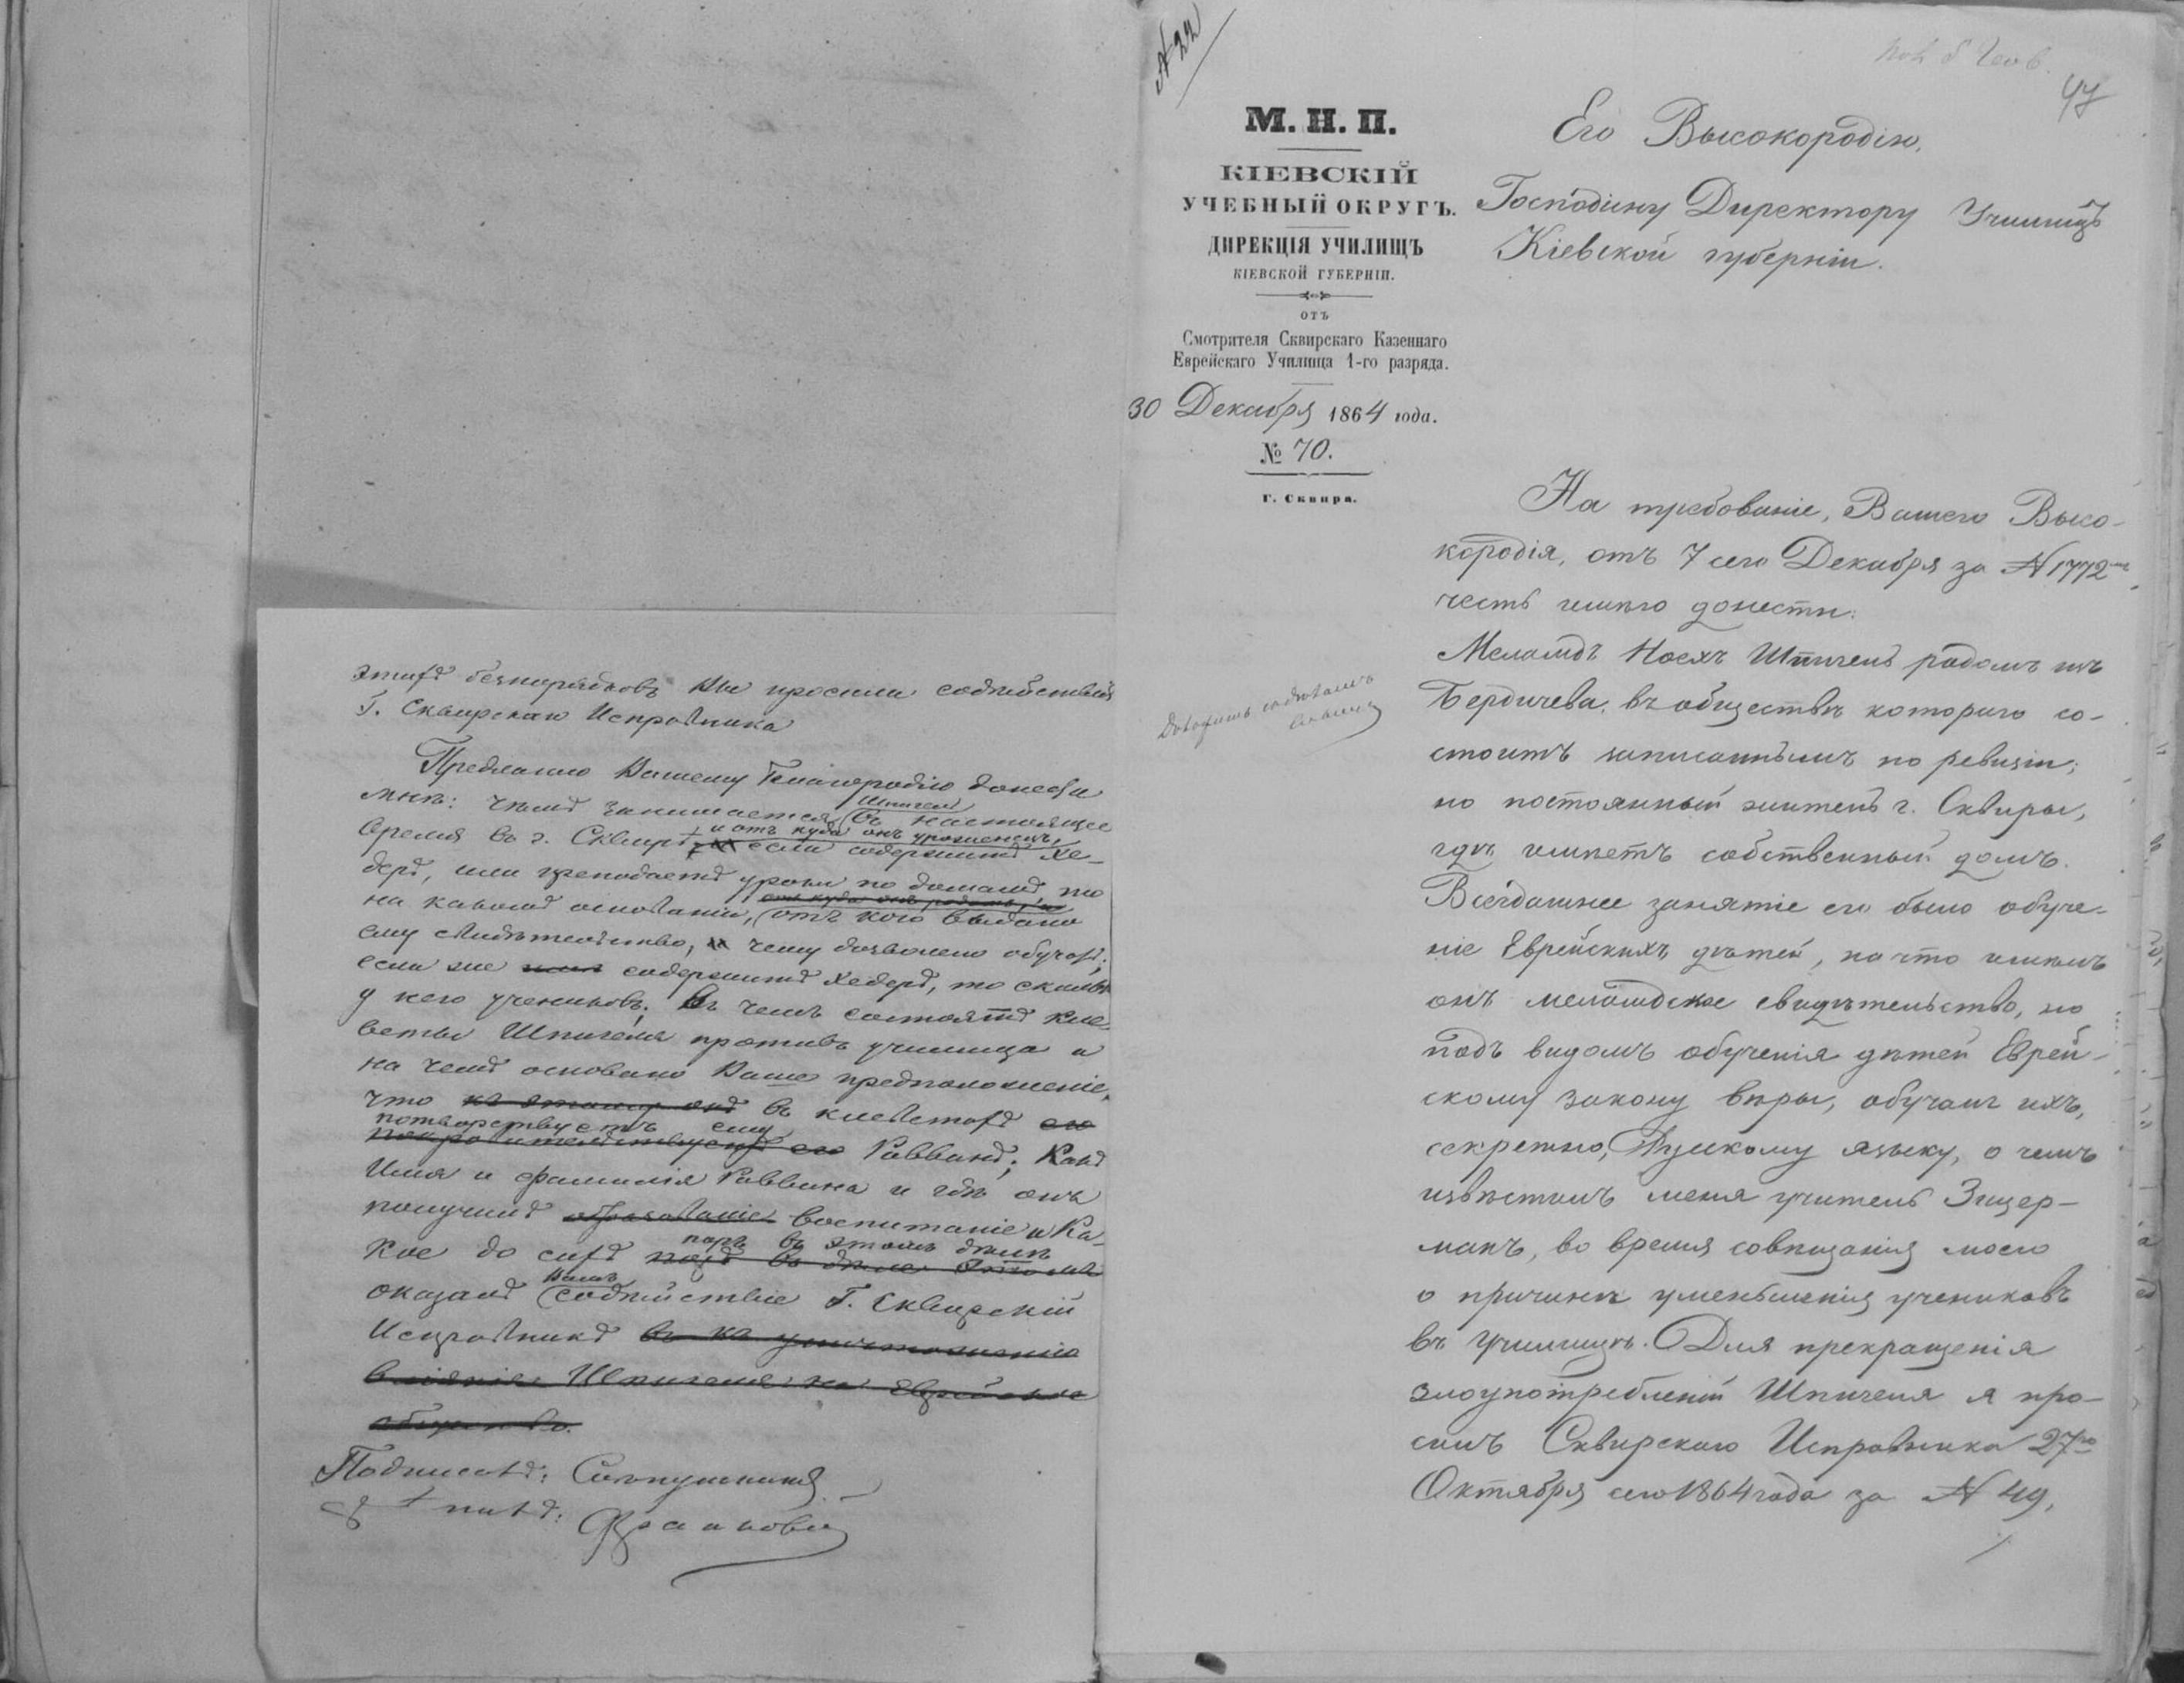 этихъ безпорядковъ Вы просили содѣйствія
Г. Сквирскаго Исправника
Предлагаю Вашему Благородію донести
мнѣ: чѣмъ занимается Шпигель въ настоящее
время въ г. Сквирѣ, и отъ куда онъ уроженецъ,
если содержитъ Хе-
деръ, или преподаетъ уроки по домамъ, то
отъ куда онъ родомъ, и
на какомъ основаніи, отъ кого выдано
ему свидѣтельство, чему дозволено обучать;
если же содержитъ Хедеръ, то сколько
у него учениковъ; Въ чемъ состоятъ кле-
веты Шпигеля противъ училища и
на чемъ основано Ваше предположеніе,
что въ клеветахъ его
потворствуетъ ему
покровительствуетъ его Раввинъ; Какъ
Имя и фамилія Раввина и гдѣ онъ
получилъ образованіе воспитаніе и Ка-
поръ въ этомъ дѣлѣ
кое до сихъ поръ въ дѣле этомъ
оказалъ Вамъ содѣйствіе Г. Сквирскій
Исправникъ въ къ уничтоженію
вліянія Шпигеля на Еврейское
общество.
Подписалъ:
М. Н. П.
КІЕВСКІЙ
УЧЕБНЫЙ ОКРУГЪ.
ДИРЕКЦІЯ УЧИЛИЩЪ
КІЕВСКОЙ ГУБЕРНІИ.
ОТЪ
Смотрителя Сквирскаго Казеннаго
Еврейскаго Училища 1-го разряда.
30 Декабря 1864 года.
№ 70.
Г. Сквира.
47
Его Высокородію,
Господину Директору Училищъ
Кіевской губерніи.
На требованіе, Вашего Высо-
кородія, отъ 7 сего Декабря за № 1772
честь имѣю донести:
Меламдъ Ноехъ Шпигель родомъ изъ
Бердичева, въ обществѣ котораго со-
стоитъ записаннымъ по ревизіи;
но постоянный житель г. Сквиры,
гдѣ имѣетъ собственный домъ.
Всегдашнее занятіе его было обуче-
ніе Еврейскихъ дѣтей, на что имѣлъ
онъ меламдское свидѣтельство, но
подъ видомъ обученія дѣтей Еврей-
скому закону вѣры, обучалъ ихъ,
секретно, Рускому языку, о чемъ
извѣстилъ меня учитель Зицер-
манъ, во время совѣщанія моего
о причинѣ уменьшенія учениковъ
въ училищѣ. Для прекращенія
злоупотребленій Шпигеля я про-
силъ Сквирскаго Исправника 27го
Октября сего 1864 года за № 49,